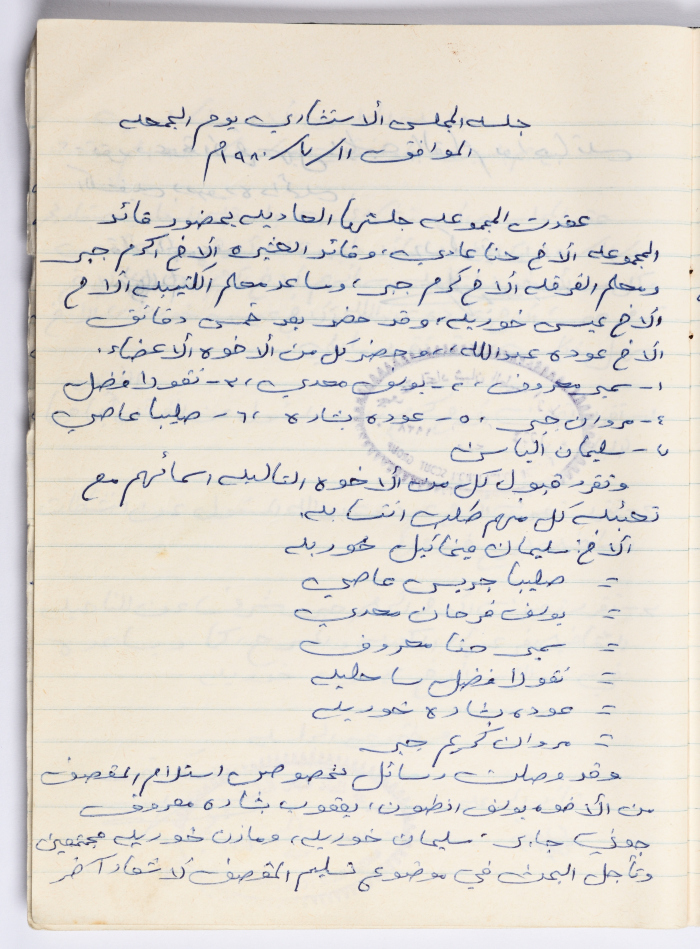 جلسه المجلس الاستشاري يوم الجمعه
الموافق ١١/٧/١٩٨٠م
عقدت المجموعه جلستها العاديه بحضور قائد
المجموعه الاخ حنا عاصي، وقائد العشيره الاخ اكرم جبر
ومعلم الفرقه الاخ كرم جبر، ومساعد معلم الكتيبه الاخ
الاخ عيسى خوريه، وقد حضر بعد خمس دقائق
الاخ عوده عبدالله، وحضر كل من الاخوه الاعضاء.
١- سمير معروف، ٢- يوسف سعدي، ٣- نقولا فضل
٤- مروان جبر، ٥- عوده بشاره، ٦- صليبا عاصي
٧- سليمان الياس
وتقرر قبول كل من الاخوه التاليه اسمائهم مع
تعبئة كل منهم طلب انتسابه.
الاخ: سليمان ميخائيل خوريه
= صليبا جريس عاصي
= يوسف فرحان سعدي
= سمير حنا معروف
= نقولا فضل ساحليه
= عوده بشاره خوريه
= مروان كريم جبر
وقد وصلت رسائل بخصوص استلام المقصف
من الاخوه يوسف انطون، يعقوب بشاره معروف
جوني جابر، سليمان خوريه، ومازن خوريه مجتمعين
وتأجل البحث في موضوع تسليم المقصف لاشعار آخر